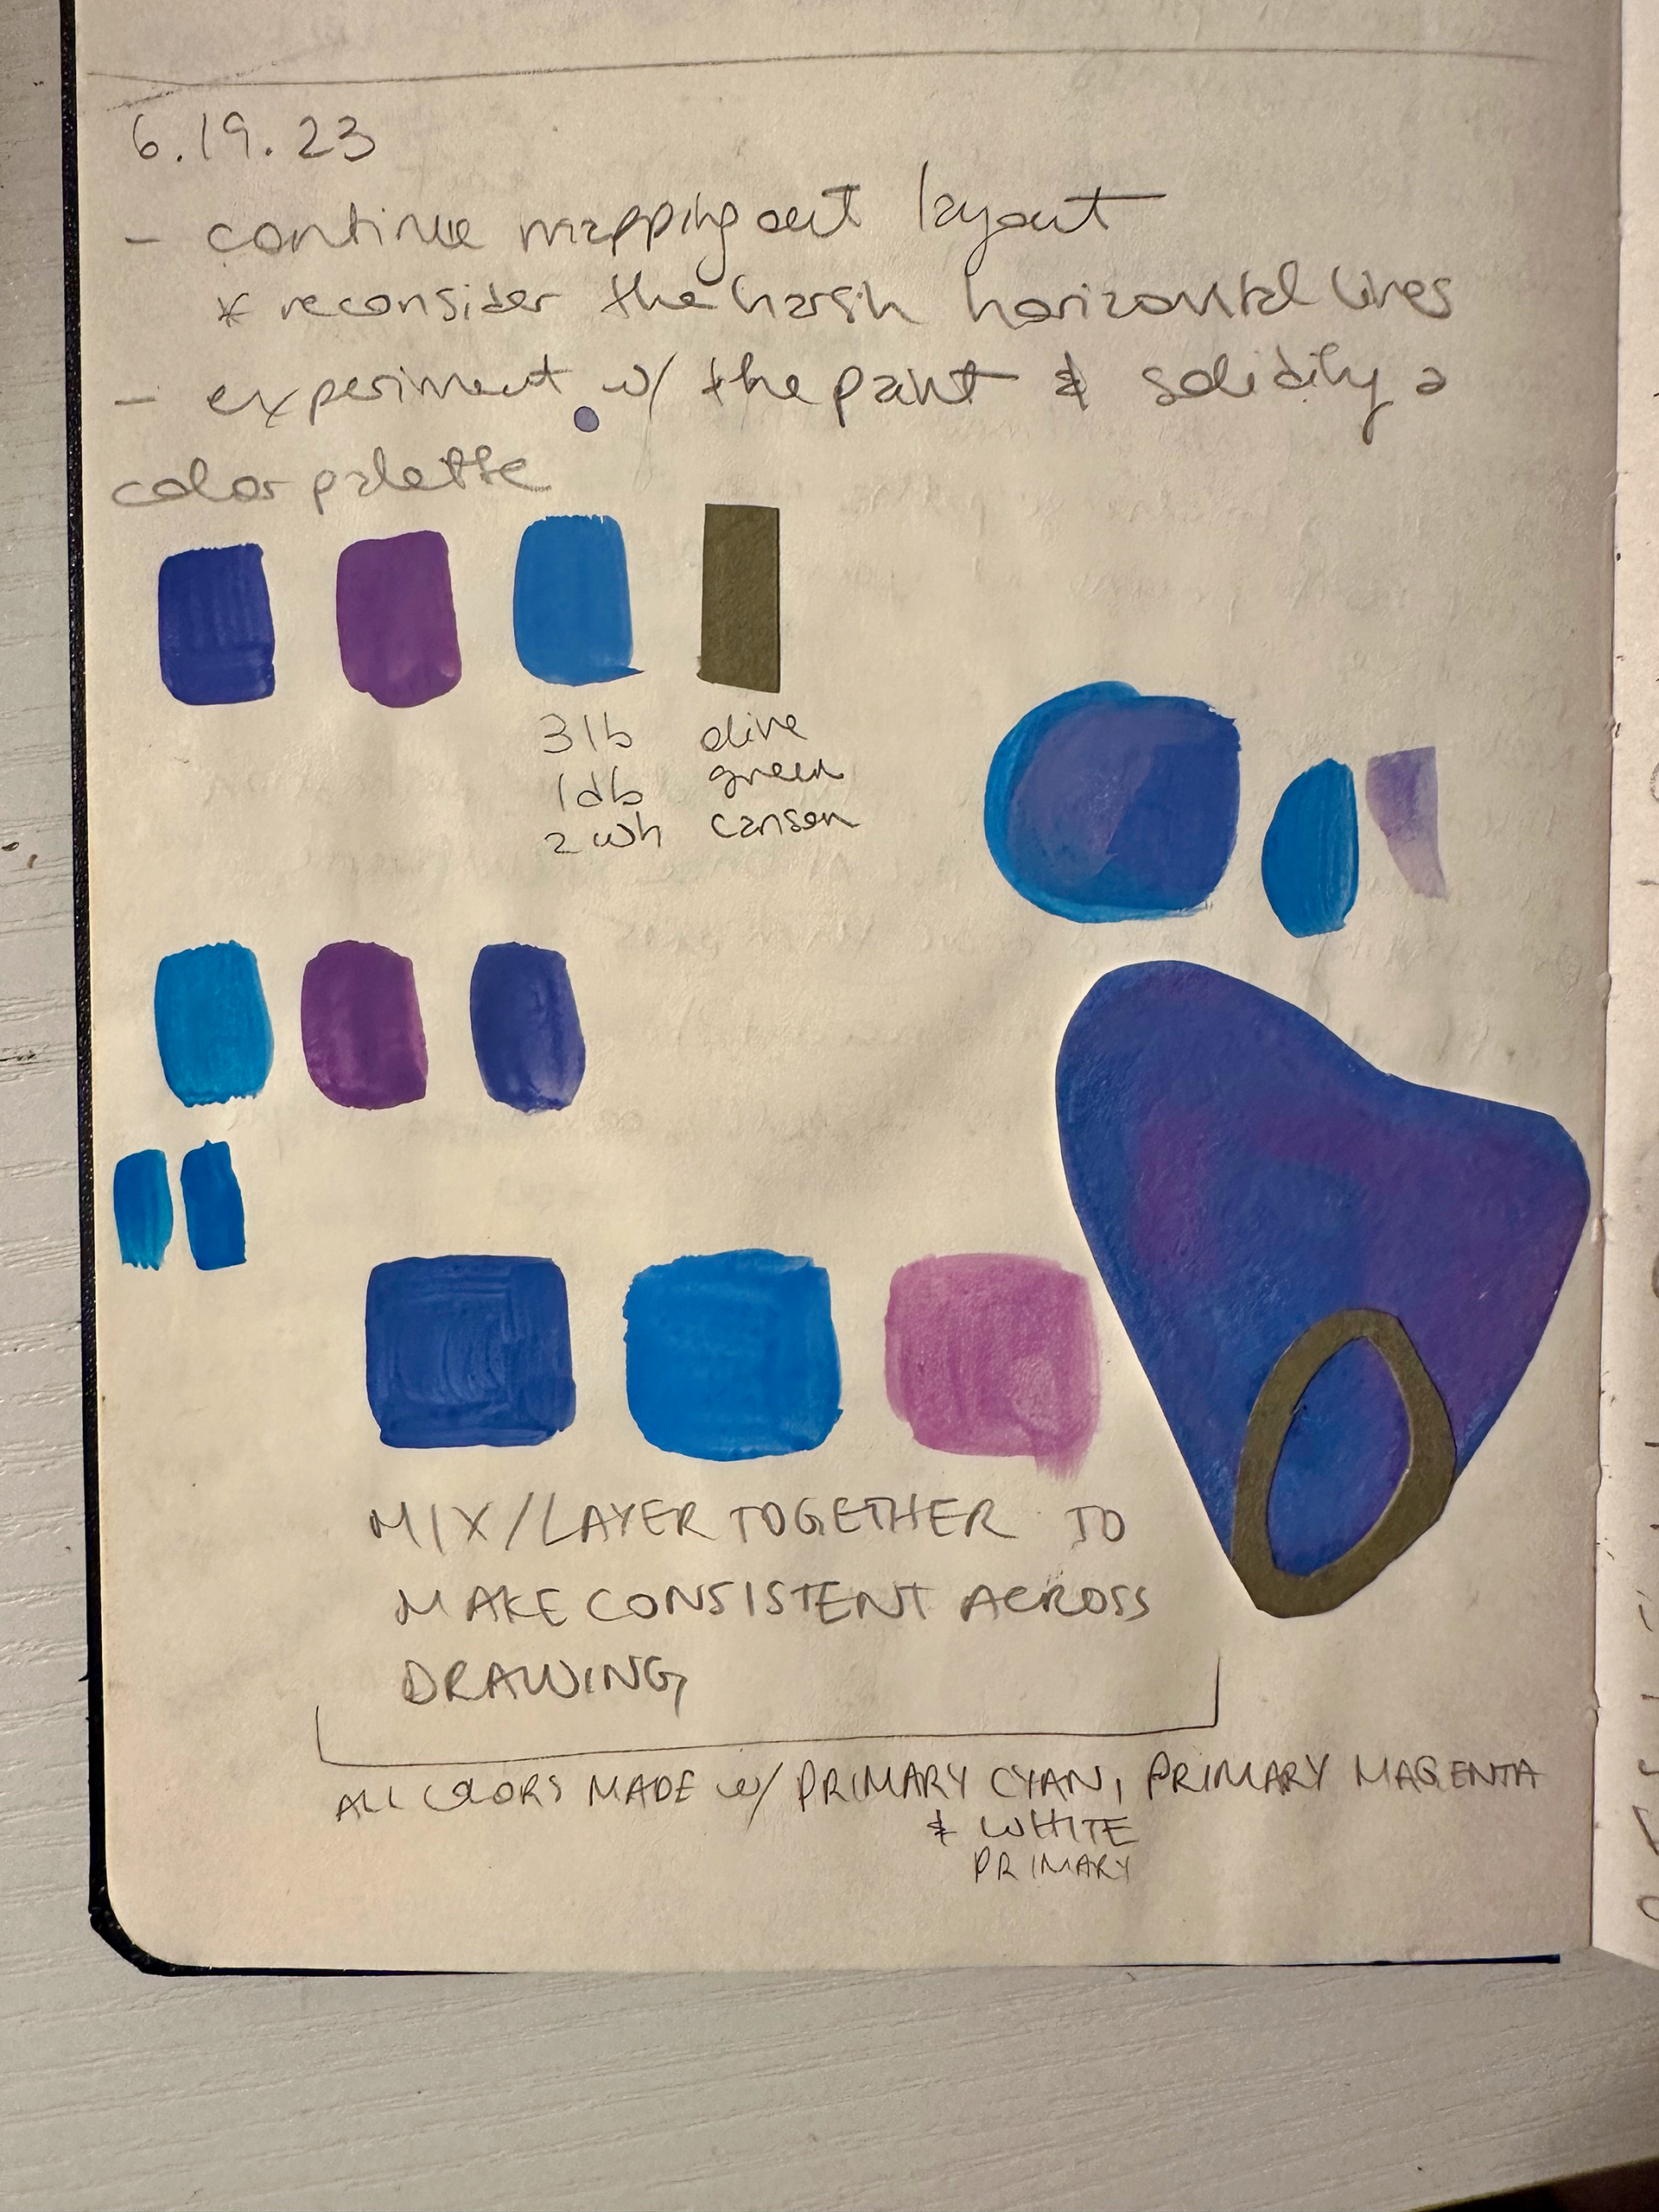 6.19.23
- continue mapping out layout
* reconsider the harsh horizontal lines
- experiment w/ the paint & solidify a
color palette
3 lb
1 db
2 wh
olive
green
canson
MIX/LAYER TOGETHER TO
MAKE CONSISTENT ACROSS
DRAWING
ALL COLORS MADE w/ PRIMARY CYAN, PRIMARY MAGENTA
& WHITE
PRIMARY